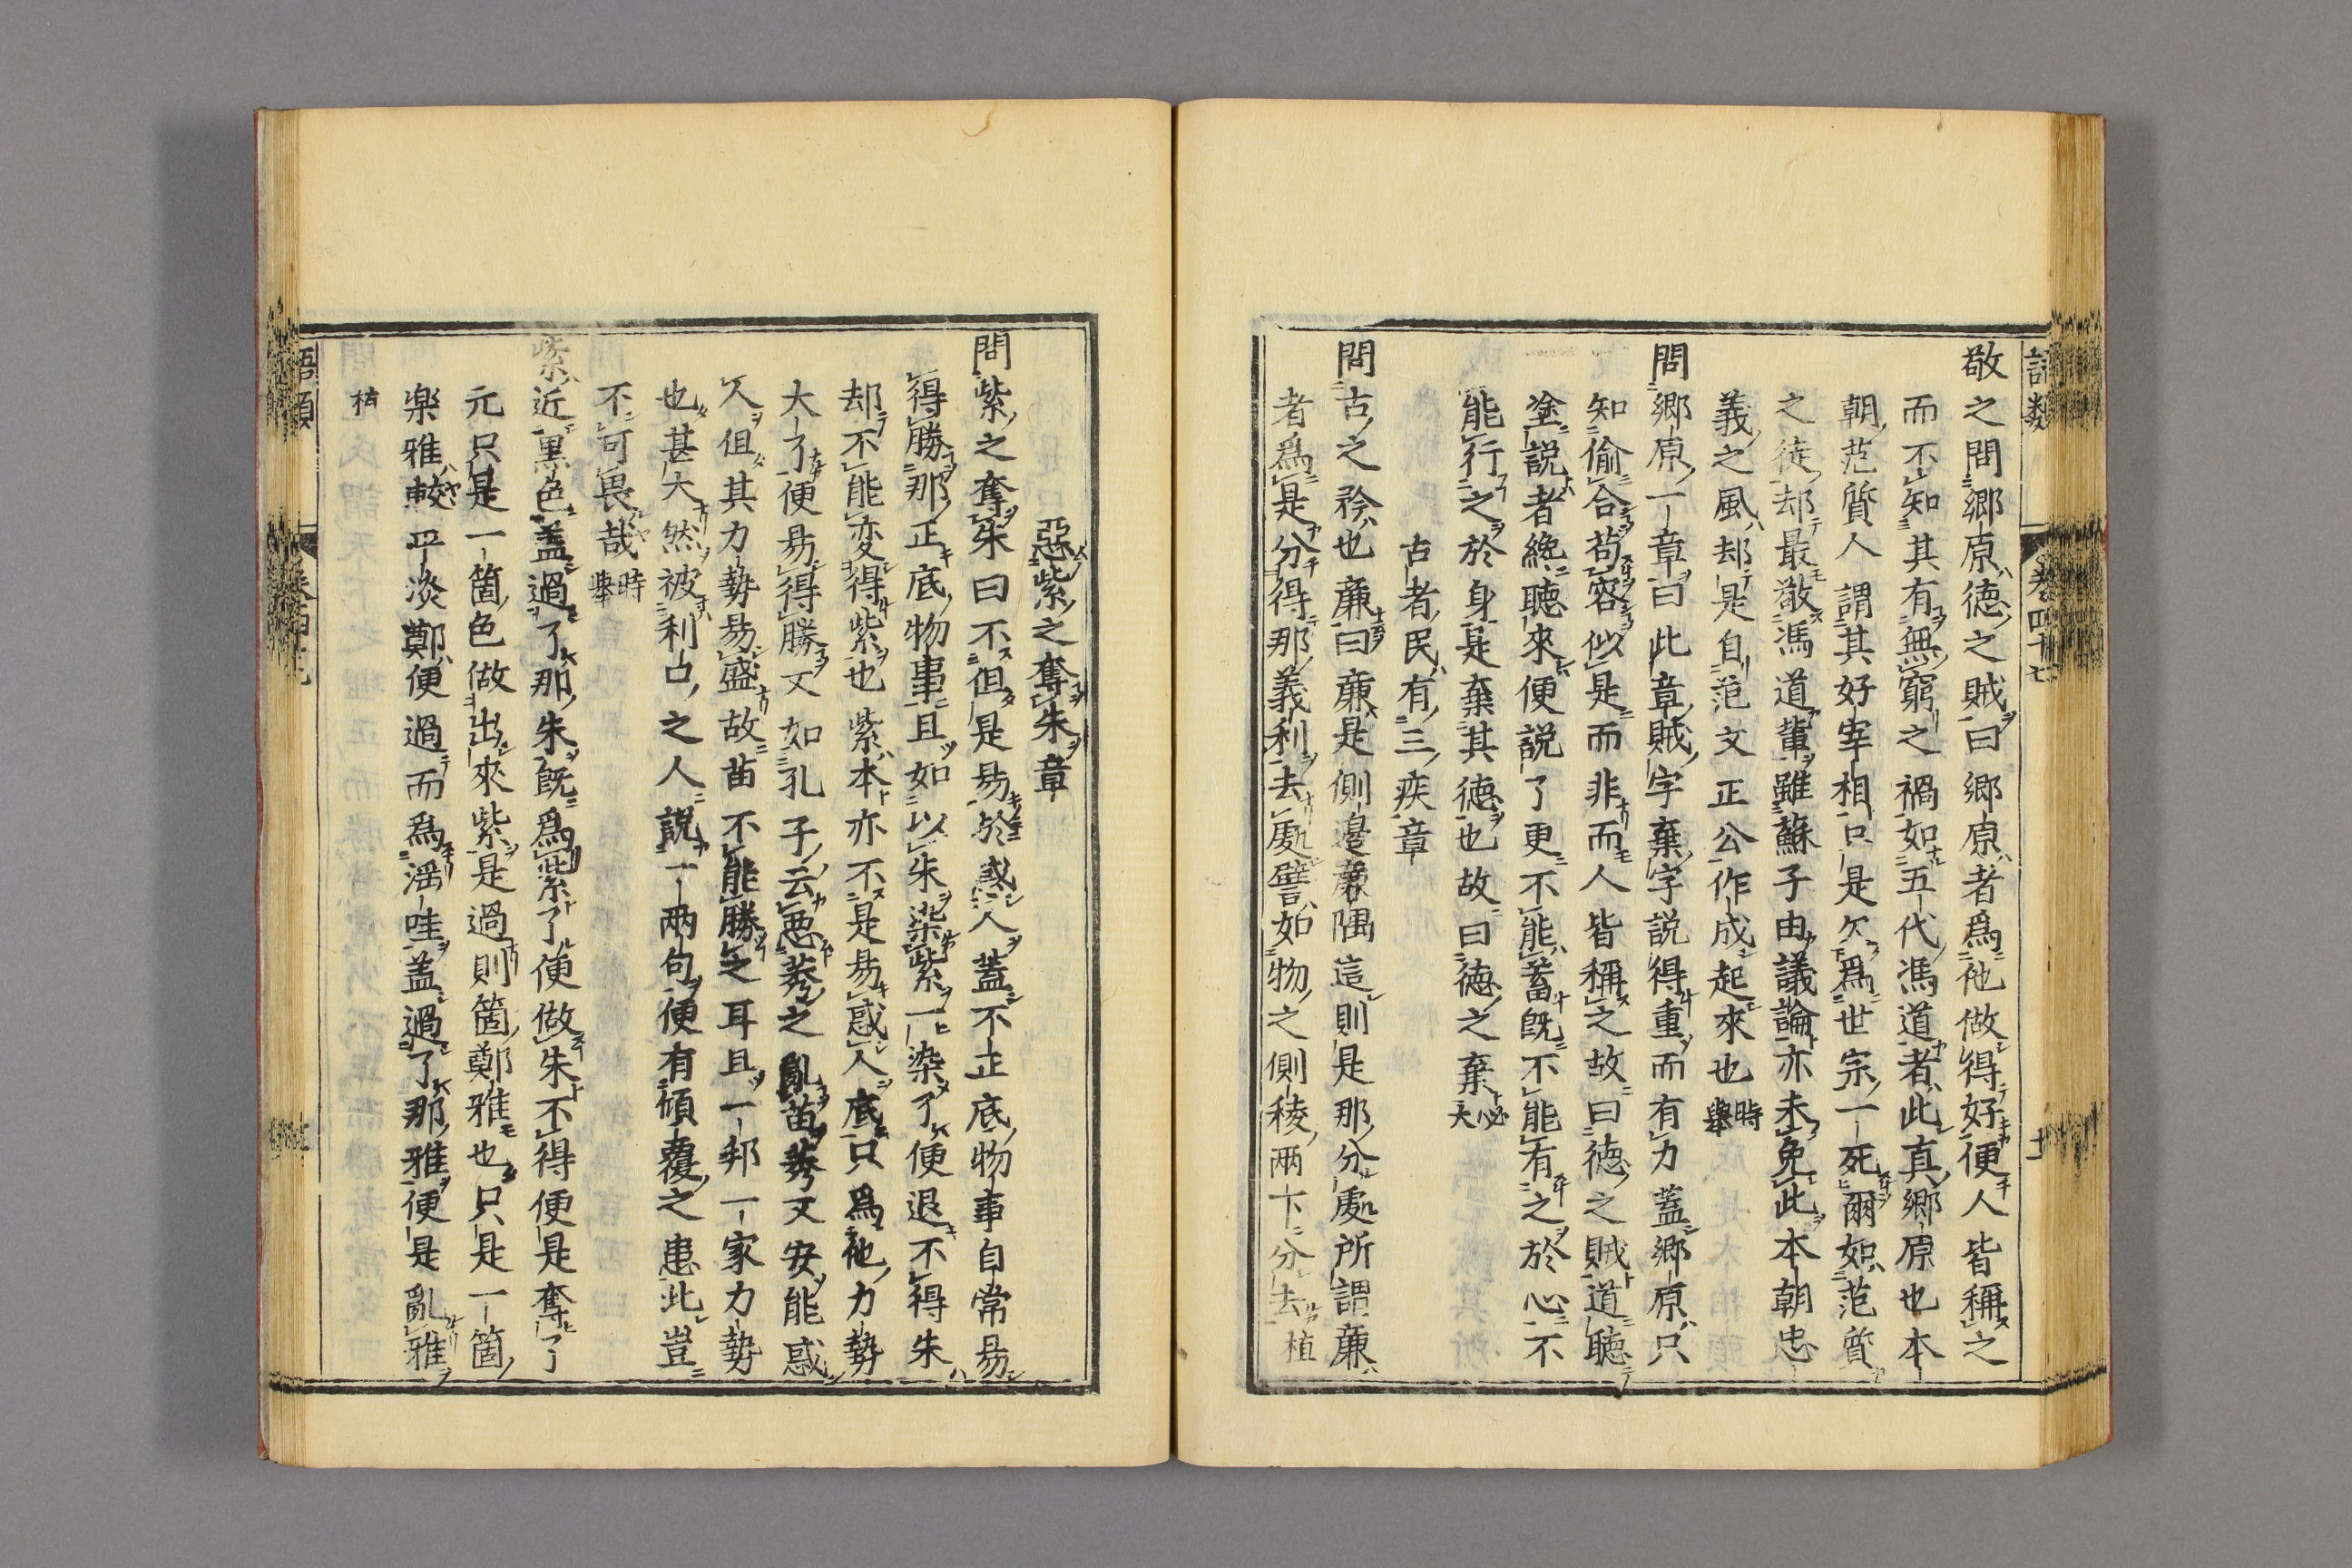 語類 卷四十七 十一
敬之問鄉原德之賊曰鄉原者爲他做得好便人皆稱之
而不知其有無窮之禍如五代馮道者此真鄉原也本
朝范質人謂其好宰相只是欠爲世宗一死爾如范質
之徒却最敬馮道輩雖蘇子由議論亦未免此本朝忠
義之風却是自范文正公作成起來也時舉
問鄉原一章曰此章賊字棄字說得重而有力蓋鄉原只
知偷合苟容似是而非而人皆稱之故曰德之賊道聽
塗說者纔聽來便說了更不能蓄既不能有之於心不
能行之於身是棄其德也故曰德之棄必大
古者民有三疾章
問古之矜也廉曰廉是側邊廉隅這則是那分處所謂廉
者爲是分得那義利去處譬如物之側稜兩下分去植
惡紫之奪朱章
問紫之奪朱曰不但是易於惑人蓋不正底物事自常易
得勝那正底物事且如以朱染紫一染了便退不得朱
却不能変得紫也紫本亦不是易惑人底只爲他力勢
大了便易得勝又如孔子云惡莠之亂苗莠又安能惑
人但其力勢易盛故苗不能勝之耳且一邦一家力勢
也甚大然被利口之人說一兩句便有傾覆之患此豈
不可畏哉時舉
紫近黑色盖過了那朱既爲紫了便做朱不得便是奪了
元只是一箇色做出來紫是過則箇鄭雅也只是一箇
楽雅較平淡鄭便過而爲淫哇盖過了那雅便是亂雅
植
語類